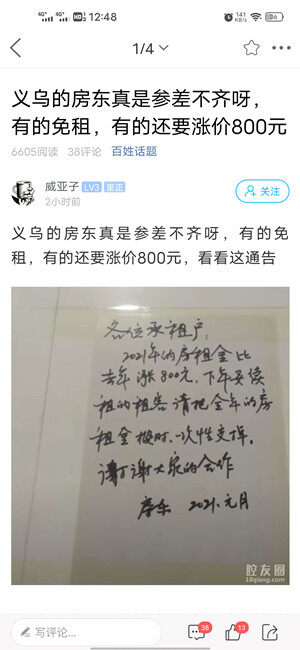 12:48
141
1/4
义乌的房东真是参差不齐呀，
有的免租，有的还要涨价800元
6605阅读 38评论 百姓话题
威亚子 LV3 里正
2小时前
关注
义乌的房东真是参差不齐呀，有的免
租，有的还要涨价800元，看看这通告
各位承租户：
2021年的房租金比
去年涨800元，下年要续
租的租客请把全年的房
租金按时一次性交掉。
谢谢大家的合作
房东 2021.元月
腔友圈
18qiang.com
写评论...
38
13